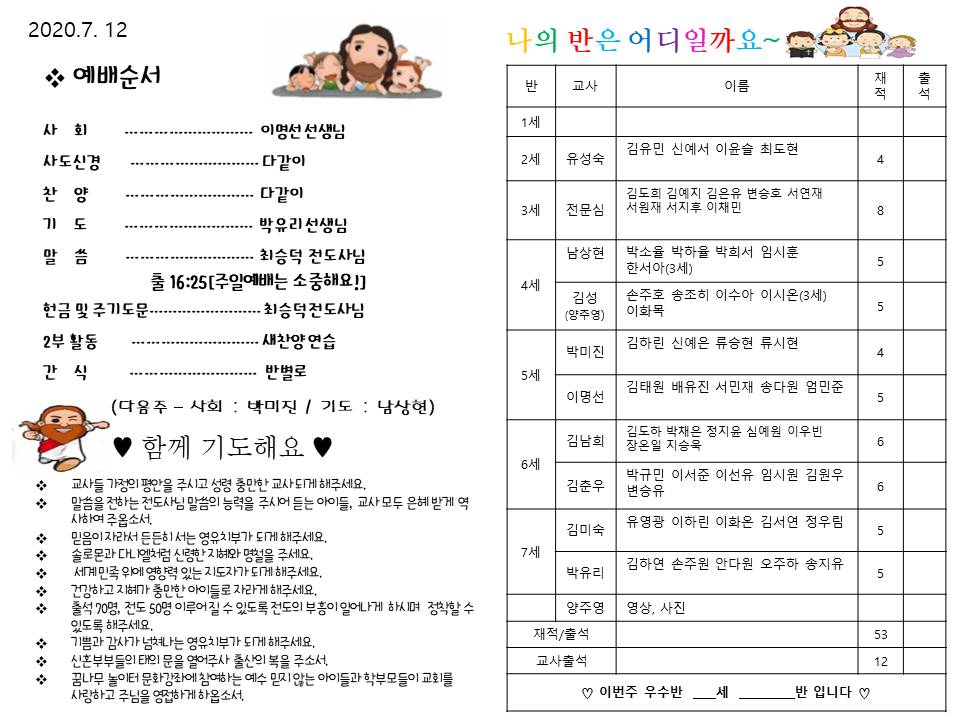 2020.7. 12
❖ 예배순서
사 회 ---------------------------- 이명선선생님
사도신경 ---------------------------- 다같이
찬 양 ---------------------------- 다같이
기 도 ---------------------------- 박유리선생님
말 씀 ---------------------------- 최승덕 전도사님
출 16:25[주일예배는 소중해요!]
헌금 및 주기도문------------------------ 최승덕전도사님
2부 활동 ---------------------------- 새찬양연습
간 식 ---------------------------- 반별로
(다음주 – 사회 : 박미진 / 기도 : 남상현)
♥ 함께 기도해요 ♥
❖ 교사들 가정의 평안을 주시고 성령 충만한 교사되게 해주세요.
❖ 말씀을 전하는 전도사님 말씀의 능력을 주시어 듣는 아이들, 교사 모두 은혜 받게 역
사하여 주옵소서.
❖ 믿음이 자라서 든든히 서는 영유치부가 되게 해주세요.
❖ 솔로몬과 다니엘처럼 신령한 지혜와 명철을 주세요.
❖ 세계 민족 위에 영향력 있는 지도자가 되게 해주세요.
❖ 건강하고 지혜가 충만한 아이들로 자라게 해주세요.
❖ 출석 70명, 전도 50명 이루어 질 수 있도록 전도의 부흥이 일어나게 하시며 정착할 수
있도록 해주세요.
❖ 기쁨과 감사가 넘쳐나는 영유치부가 되게 해주세요.
❖ 신혼부부들의 태의 문을 열어주사 출산의 복을 주소서.
❖ 꿈나무 놀이터 문화강좌에 참여하는 예수 믿지 않는 아이들과 학부모들이 교회를
사랑하고 주님을 영접하게 하옵소서.
나의 반은 어디일까요~
반 교사 이름 재적 출석
1세
2세 유성숙 김유민 신예서 이윤슬 최도현 4
3세 전문심 김도희 김예지 김은유 변승호 서연재
서원재 서지후 이채민 8
4세 남상현 박소율 박하율 박희서 임시훈
한서아(3세) 5
김성
(양주영) 손주호 송조히 이수아 이시온(3세)
이화목 5
5세 박미진 김하린 신예은 류승현 류시현 4
이명선 김태원 배유진 서민재 송다원 엄민준 5
6세 김남희 김도하 박채은 정지윤 심예원 이우빈
장온일 지승욱 6
김춘우 박규민 이서준 이선유 임시원 김원우
변승유 6
7세 김미숙 유영광 이하린 이화온 김서연 정우림 5
박유리 김하연 손주원 안다원 오주하 송지유 5
양주영 영상, 사진
재적/출석 53
교사출석 12
♡ 이번주 우수반 ___세 ________반 입니다 ♡